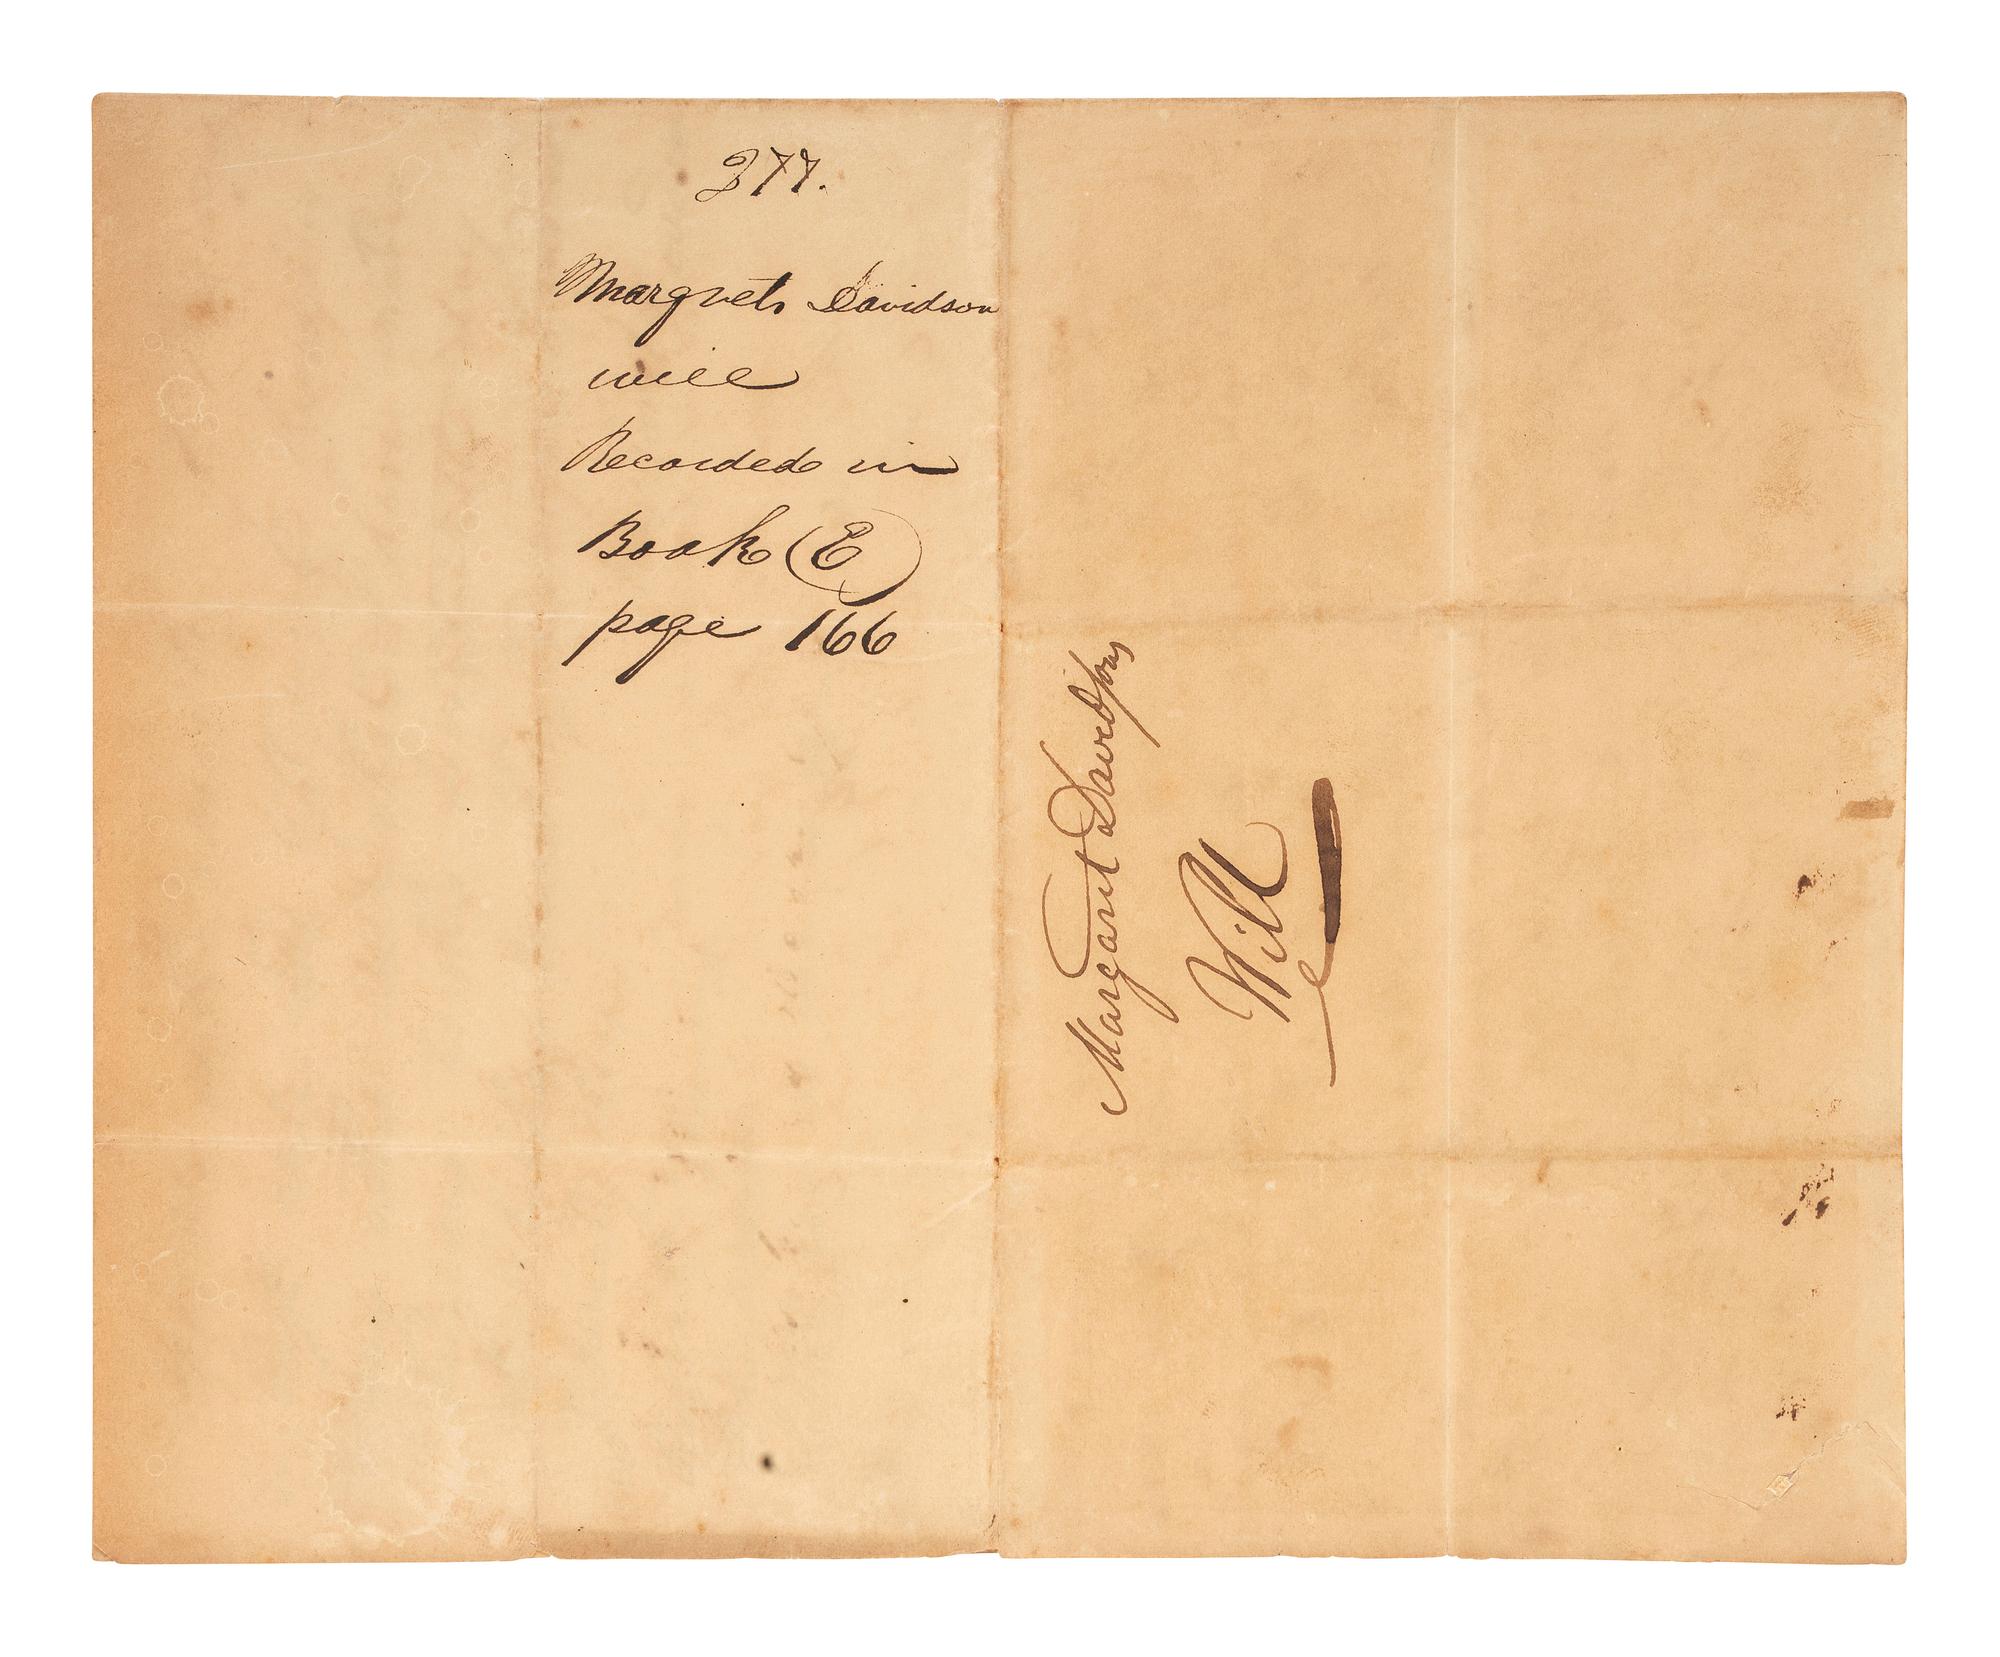 277.
Margrets Davidson
will
Recorded in
Book (E)
page 166
Margaret Davidsons
Will